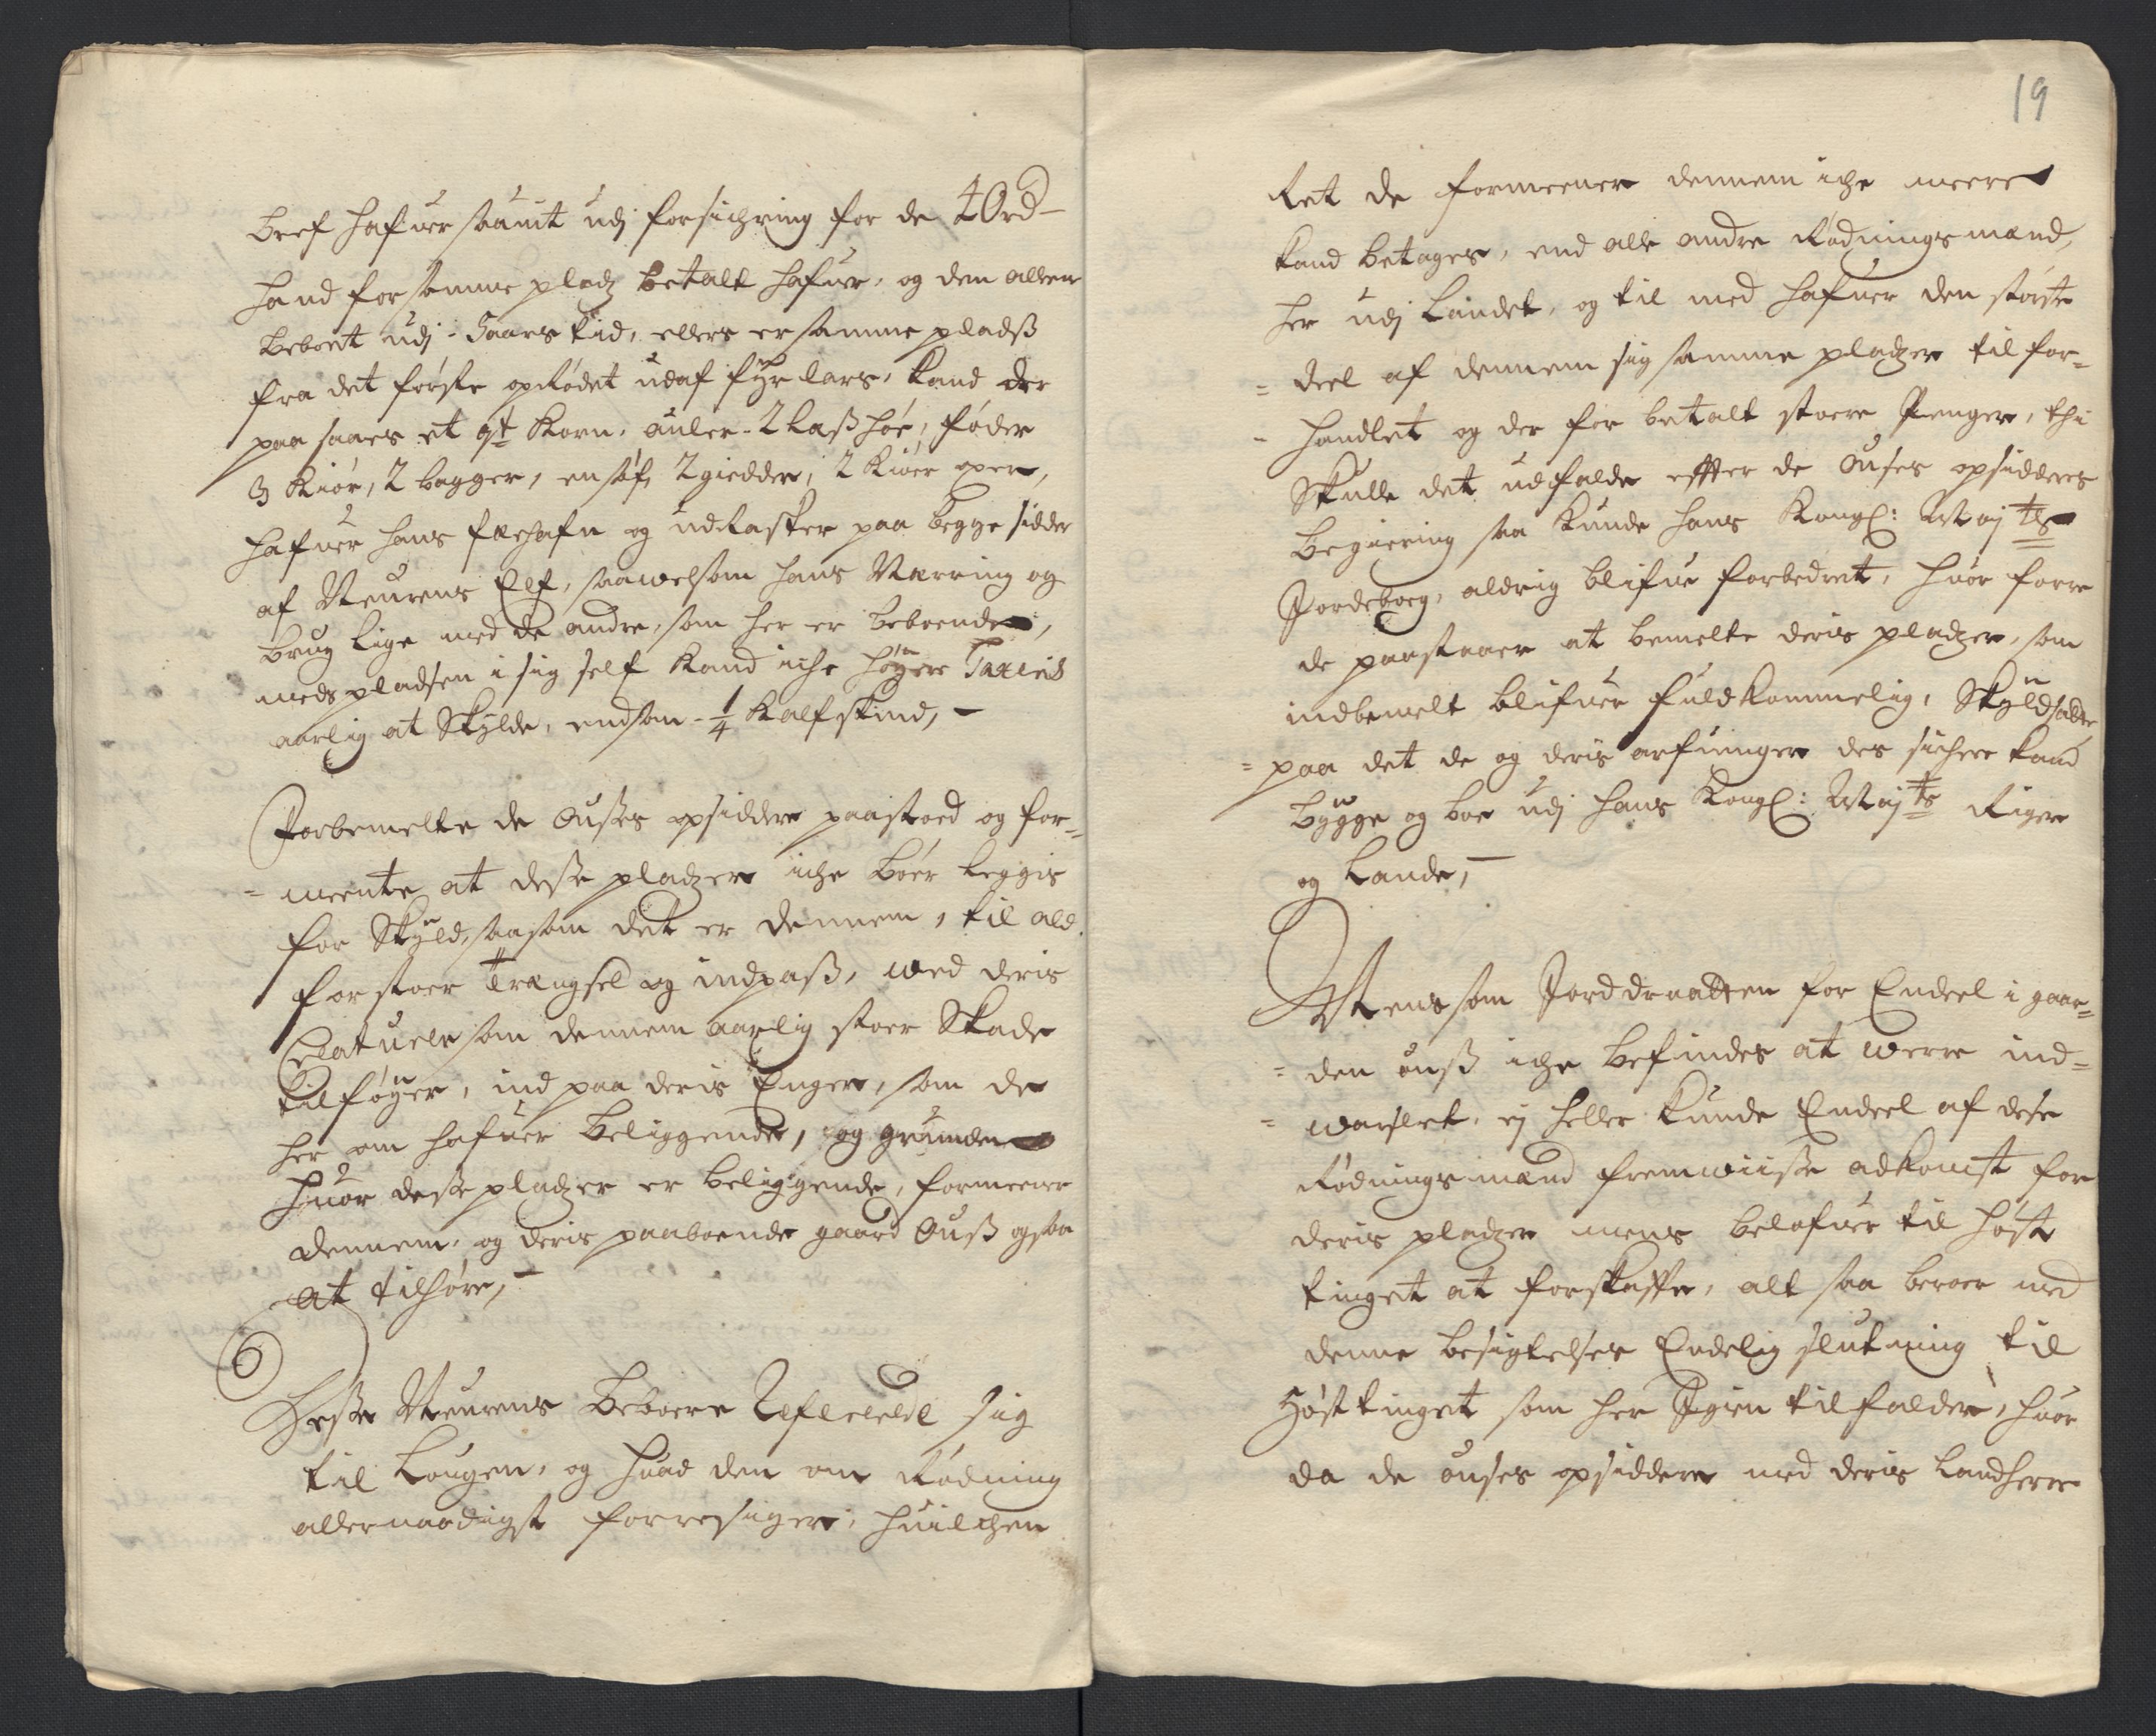 bref hafuer samt udj forsichring for de 40rd
hand for samme pladz betalt hafuer, og den alleen
beboet udj 5 aars tid, ellers er samme pladß
fra det første oprødet udaf fyrelars, kand der
paa saaes et qt Korn, auler 2 laß høe, føder
3 Kiør, 2 bagger, en søf, 2 giedder, 2
hafuer hans fæehafn og udraster paa begge sidder
af Meurens Elf, saawelsom hans Nærring og
brug lige med de andre, som her er beboende,
meds pladsen i sig self kand iche høyere Taxeris
aarlig at Skylde, end som ¼ Kalfskind,
Forbemelte de Oußes opsiddere paastoed og for-
meente at desse pladzer iche bør leggis
for Skyld, saasom det er dennem, til ald
for stoer Trængsel og indpaß, wed deris
som dennem aarlig stoer Skade
tilføyer, ind paa deris Enger, som de
her om hafuer beliggende, og grunden
huor desse pladzer er beliggende, formeener
dennem, og deris paaboende gaard Ouß ogsaa
at tilhøre,
Desse Meurens Beboere Refererede sig
til Lougen, og huad den om Rødning
allernaadigst forresiger, huilchen
19
Ret de formeener dennem iche meere
kand betages, end alle andre Rødnings mænd,
her udj Landet, og til med hafuer den største
deel af dennem sig samme pladzer til for-
handlet og der for betalt stoere Penger, thi
Skulle det udfalde effter de Ouses opsidderes
begiering saa kunde hans Kongl: Maj ts
Jordebog, aldrig blifue forbedret, huor forre
de paastaaer at bemelte deris pladzer, som
indbemelt blifuer fuldkommelig, Skyldsatte
paa det de og deris arfuinger des sichere kand
bygge og boe udj hans Kongl: Maj ts Riger
og Lande,
Mens som Jorddraatten for Endeel i gaar-
den ouß iche befindes at werre ind-
warslet, ej heller kunde Endeel af dese
Rødnings mænd fremwiiße adkomst for
deris pladzer mens belofuer til høst
tinget at forskaffe, alt saa beroer med
denne besigtelses Endelig slutning til
Høst tinget som her Igien tilfalder, huor
da de ouses opsiddere med deris Landherre